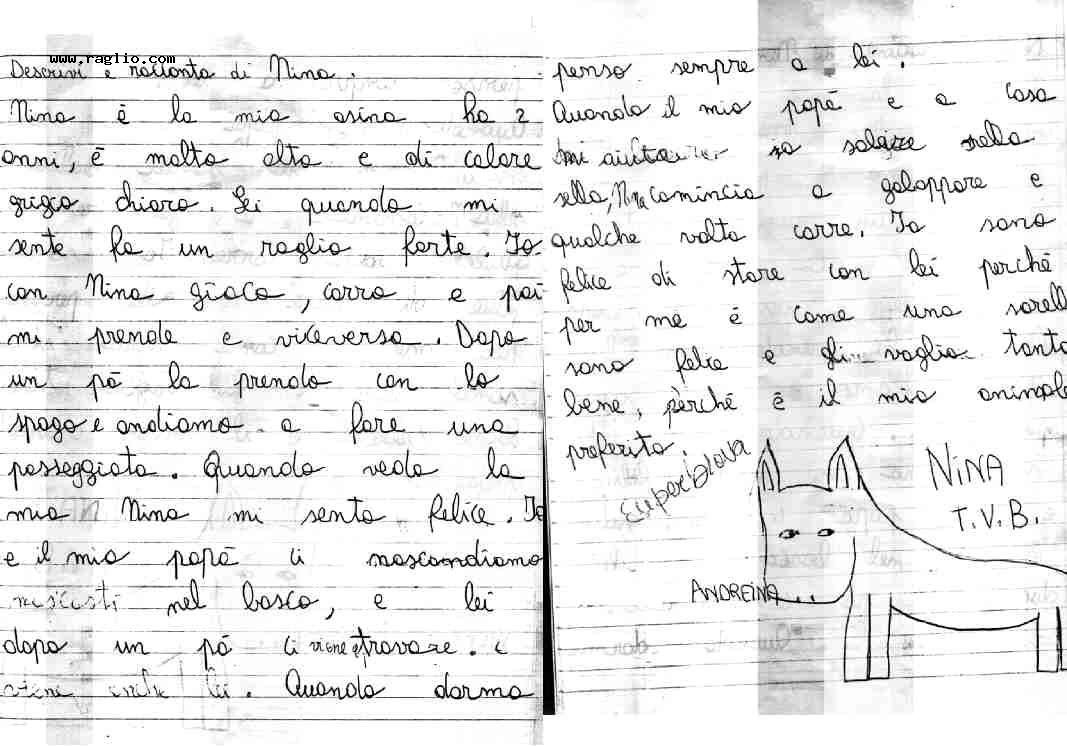 www.raglio.com
Descrivi e racconta di Nina.
Nina è la mia asina ha 2
anni, è molto alta e di colore
grigio chiaro. Lei quando mi
sente fa un raglio forte. Io
con Nina gioco, corro e poi
mi prende e viceversa. Dopo
un pó la prendo con lo
spago e andiamo a fare una
passeggiata. Quando vedo la
mia Nina mi sento felice. Io
e il mio papá ci nascondiamo
nel bosco, e lei
dopo un pó ci viene a trovare.
lei. Quando dormo
penso sempre a lei.
Quando il mio papá e a casa
mi aiuta a salire sulla
sella, Nina comincia a galoppare e
qualche volta corre. Io sono
felice di stare con lei perché
per me é come una sorella
sono felice e gli voglio tanto
bene, pèrché é il mio animale
preferito.
SuperBrava
NiNA
T.V.B.
ANDREINA..